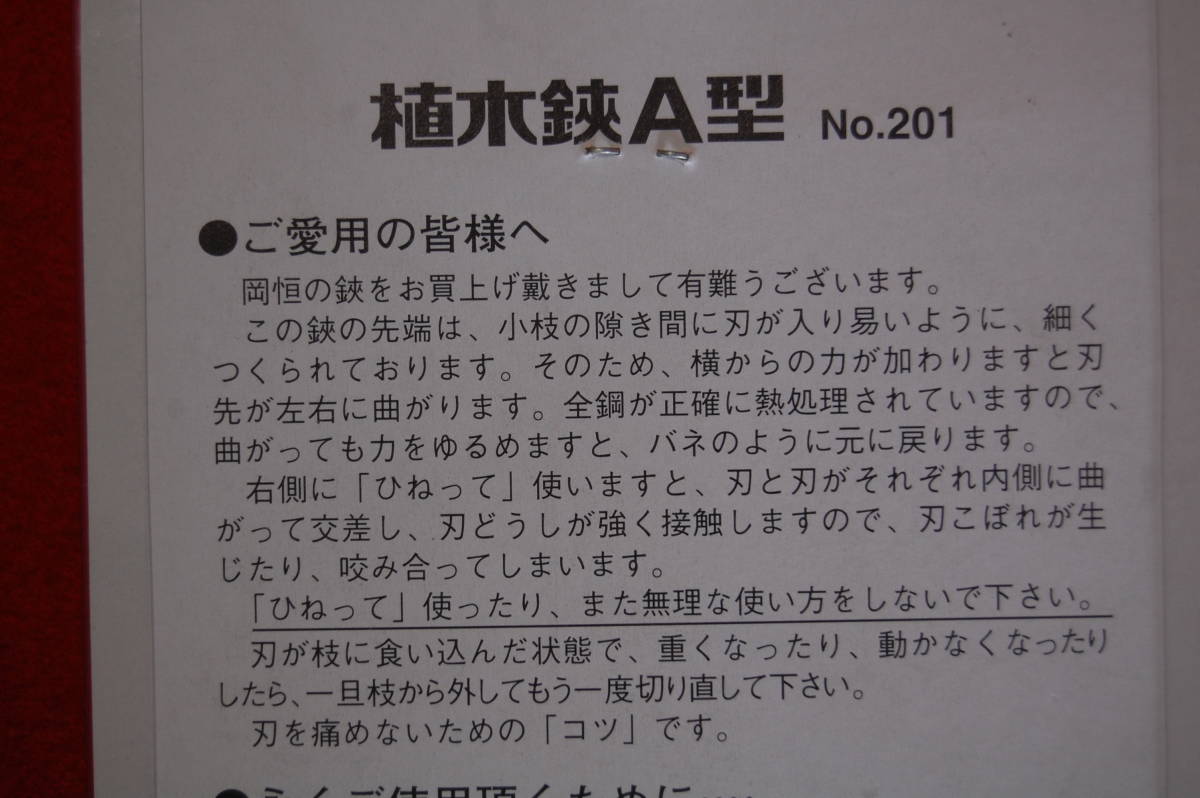 植木鋏A型 No.201
●ご愛用の皆様へ
岡恒の鋏をお買上げ戴きまして有難うございます。
この鋏の先端は、小枝の隙き間に刃が入り易いように、細く
つくられております。そのため、横からの力が加わりますと刃
先が左右に曲がります。全鋼が正確に熱処理されていますので、
曲がっても力をゆるめますと、バネのように元に戻ります。
右側に「ひねって」使いますと、刃と刃がそれぞれ内側に曲
がって交差し、刃どうしが強く接触しますので、刃こぼれが生
じたり、咬み合ってしまいます。
「ひねって」使ったり、また無理な使い方をしないで下さい。
刃が枝に食い込んだ状態で、重くなったり、動かなくなったり
したら、一旦枝から外してもう一度切り直して下さい。
刃を痛めないための「コツ」です。